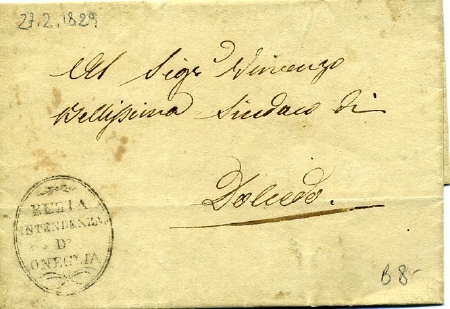 27.2.1829
Al Sigr Vincenzo
Bellissima Sindaco di
Dolcedo.
REGIA
INTENDENZA
D'
ONEGLIA
B 8-